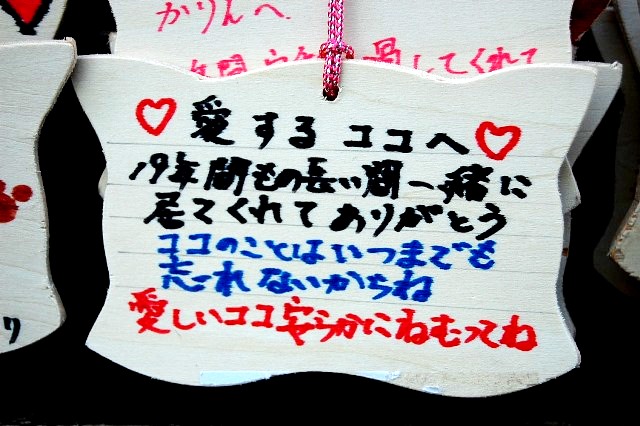 かりんへ
年間 過してくれて
♡愛するココへ♡
19年間もの長い間一緒に
居てくれてありがとう
ココのことはいつまでも
忘れないからね
愛しいココ安らかにねむってね